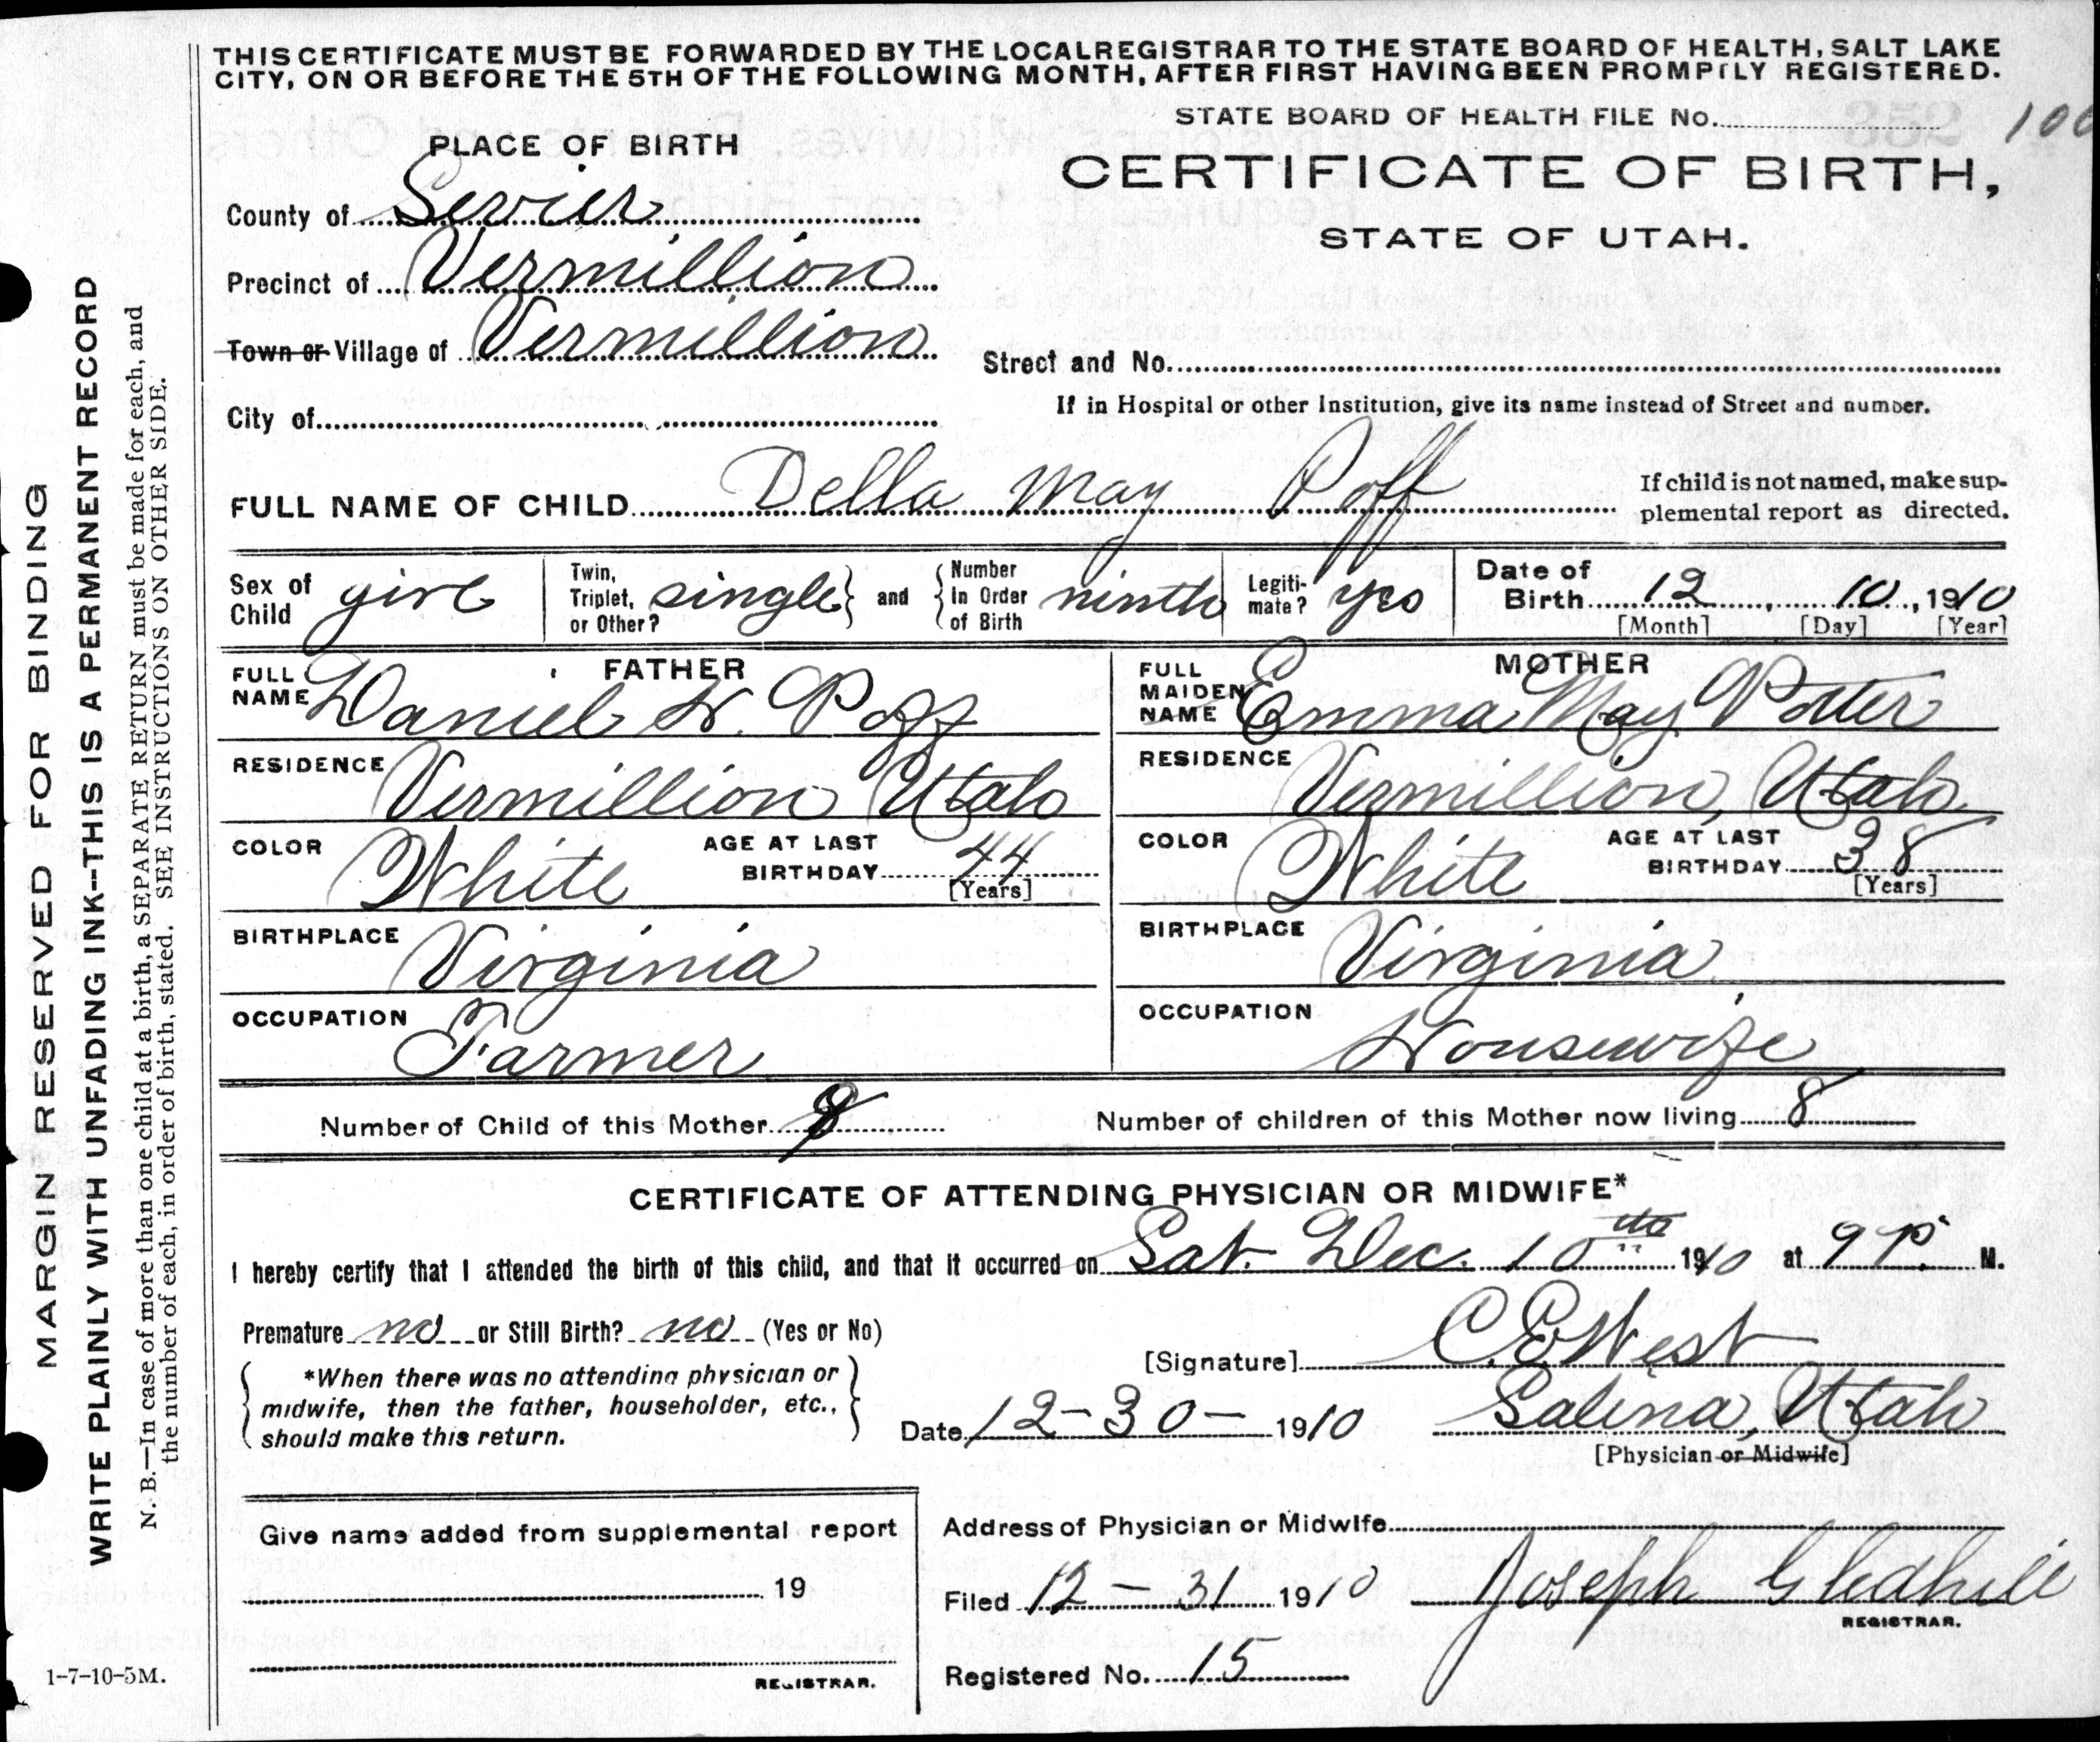 THIS CERTIFICATE MUST BE FORWARDED BY THE LOCAL REGISTRAR TO THE STATE BOARD OF HEALTH, SALT LAKE
CITY, ON OR BEFORE THE 5TH OF THE FOLLOWING MONTH, AFTER FIRST HAVING BEEN PROMPTLY REGISTERED.
STATE BOARD OF HEALTH FILE No.
PLACE OF BIRTH
CERTIFICATE OF BIRTH,
STATE OF UTAH.
County of Sevier
Precinct of Vermillion
Town or Village of Vermillion
Street and No.
City of
If in Hospital or other Institution, give its name instead of Street and number.
FULL NAME OF CHILD Della May Poff
If child is not named, make sup-
plemental report as directed.
Sex of Child girl
Twin, Triplet, or Other? single and Number In Order of Birth ninth
Legiti-mate? yes
Date of Birth 12, 10, 1910
[Month] [Day] [Year]
FATHER
FULL NAME Daniel H. Poff
MOTHER
FULL MAIDEN NAME Emma May Potter
RESIDENCE Vermillion Utah
RESIDENCE Vermillion, Utah
COLOR White AGE AT LAST BIRTHDAY 44 [Years]
COLOR White AGE AT LAST BIRTHDAY 38 [Years]
BIRTHPLACE Virginia
BIRTHPLACE Virginia
OCCUPATION Farmer
OCCUPATION Housewife
Number of Child of this Mother 9 Number of children of this Mother now living 8
CERTIFICATE OF ATTENDING PHYSICIAN OR MIDWIFE*
I hereby certify that I attended the birth of this child, and that it occurred on Sat. Dec. 10th 1910 at 9 P. M.
Premature no or Still Birth? no (Yes or No)
[Signature] C. E. West
*When there was no attending physician or
midwife, then the father, householder, etc.,
should make this return.
Date 12-30- 1910 Salina, Utah
[Physician or Midwife]
Give name added from supplemental report
19
REGISTRAR.
Address of Physician or Midwife
Filed 12-31 1910 Joseph Gledhill
REGISTRAR.
Registered No. 15
1-7-10-5M.
MARGIN RESERVED FOR BINDING
WRITE PLAINLY WITH UNFADING INK--THIS IS A PERMANENT RECORD
N. B.—In case of more than one child at a birth, a SEPARATE RETURN must be made for each, and
the number of each, in order of birth, stated. SEE INSTRUCTIONS ON OTHER SIDE.